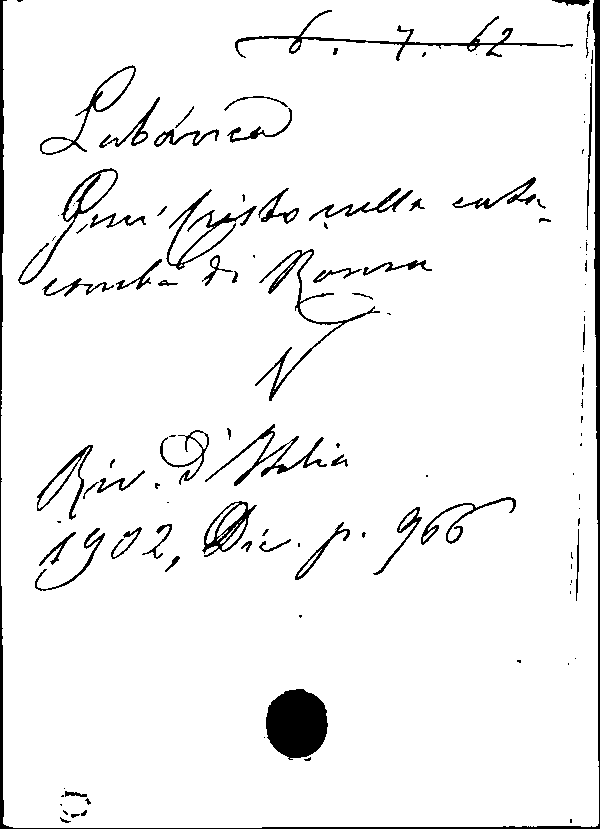 6. 7. 62
Labanca
Gesù Cristo nella cata-
comba di Roma
N
Riv. d'Italia
1902, Dic. p. 966